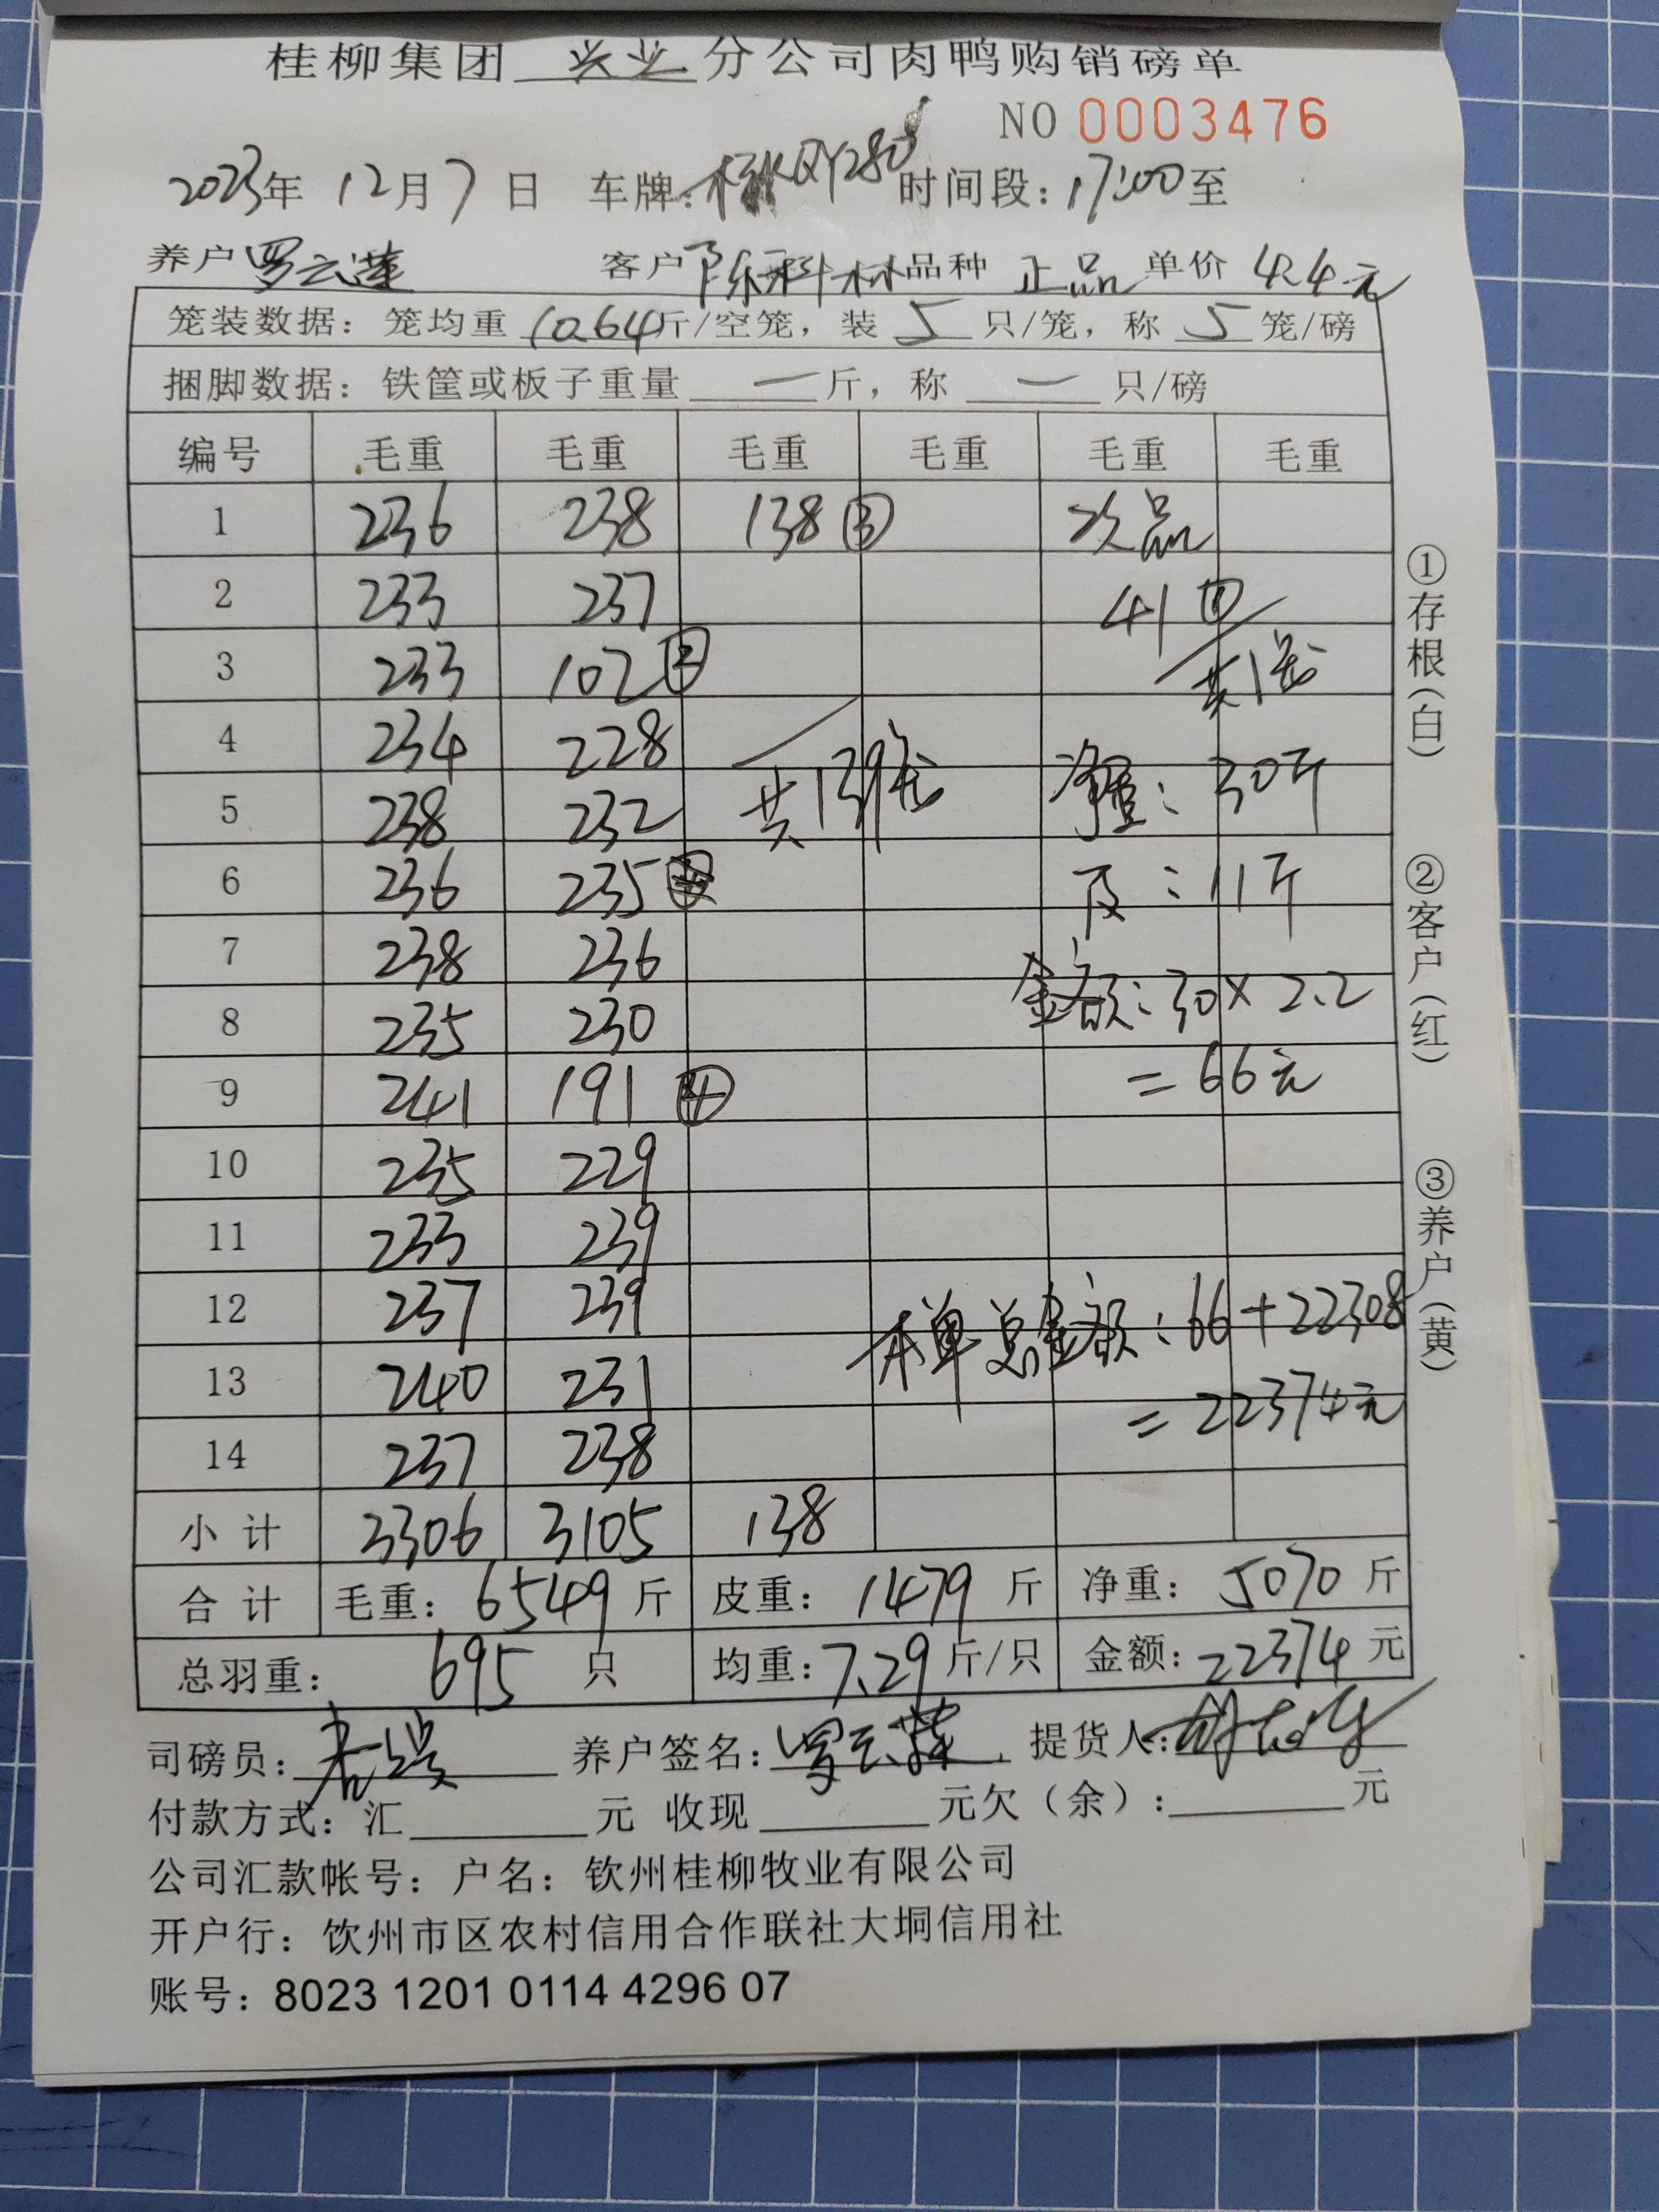 桂柳集团 兴业 分公司肉鸭购销磅单
NO 0003476
2023年 12月7日 车牌: 时间段: 17:00至
养户 罗云莲 客户 陈科林 品种 正品 单价 4.4元
笼装数据: 笼均重 10.64斤/空笼, 装 5 只/笼, 称 5 笼/磅
捆脚数据: 铁筐或板子重量 — 斤, 称 — 只/磅
编号 毛重 毛重 毛重 毛重 毛重 毛重
1 236 238 138 ③ 次品
2 233 237 41 ①
3 233 102 ② 共1笼
4 234 228
5 238 232 共139笼 净重: 30斤
6 236 235 皮: 11斤
7 238 236
8 235 230 金额: 30×2.2
9 241 191 ④ =66元
10 235 229
11 233 239
12 237 239 本单总金额: 66+22308
13 240 231 =22374元
14 237 238
小计 3306 3105 138
合计 毛重: 6549 斤 皮重: 1479 斤 净重: 5070 斤
总羽重: 695 只 均重: 7.29 斤/只 金额: 22374 元
司磅员: 养户签名: 罗云莲 提货人:
付款方式: 汇 元 收现 元欠(余): 元
公司汇款帐号: 户名: 钦州桂柳牧业有限公司
开户行: 钦州市区农村信用合作联社大垌信用社
账号: 8023 1201 0114 4296 07
①存根(白)
②客户(红)
③养户(黄)